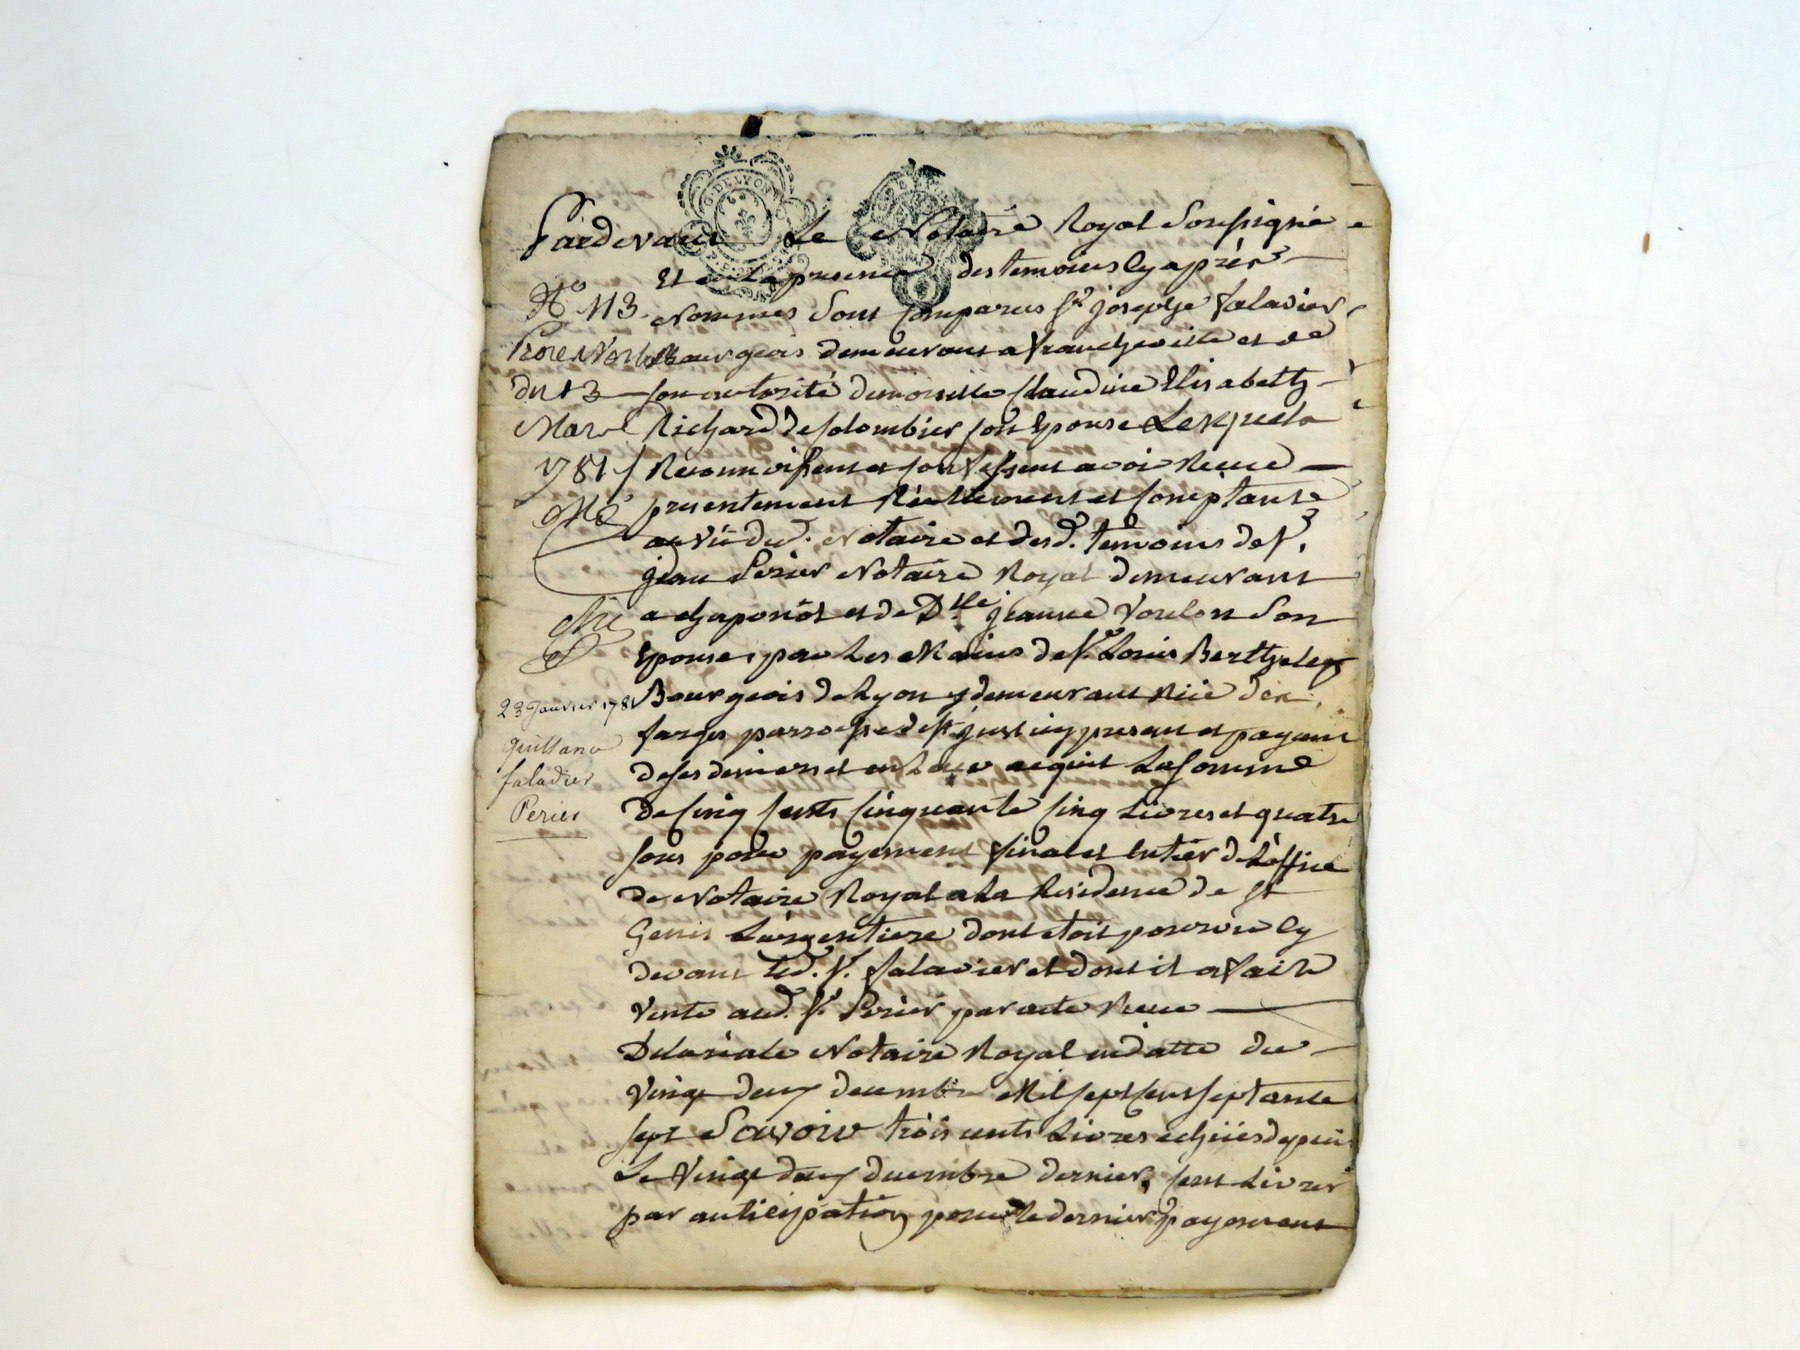 G. DE LYON
Pardevant Le Notaire Royal Soussigné
Et en La presence des temoins Cy après
Nommés Sont Comparus sr. joseph falavier
Bourgeois demeurant a francheville et de
son authorité demoiselle Claudine Elisabeth
Richard De Colombier son Epouse Lesquels
Reconnoissent et Confessent avoir Receu
presentement Réellement et Comptant
au vü dud. Notaire et desd. temoins de sr.
jean Perier Notaire Royal demeurant
a chaponôt et de Dlle. jeanne Voulon Son
Epouse, par Les Mains de sr. Louis Berthelet
Bourgeois de Lyon y demeurant Rüe des
farges parroisse de st. just icy present et payant
de ses deniers et en Leur acquit La Somme
De Cinq Cents Cinquante Cinq Livres et quatre
sous pour payement final et Entier de L'office
de Notaire Royal a La Residence de st
Genis L'argentiere dont etoit pourvu Cy
devant Led. sr. falavier et dont il a fait
Vente aud. sr. Perier par acte Receu
Delariale Notaire Royal en datte du
Vingt deux decembre Mil sept Cent septante
sept Savoir trois cents Livres echües depuis
Le Vingt deux decembre dernier, Cent Livres
par anticipation pour le dernier payement
No. 113.
du 13
Mars
1781
23 Janvier 1781
Quittance
faladier
Perier